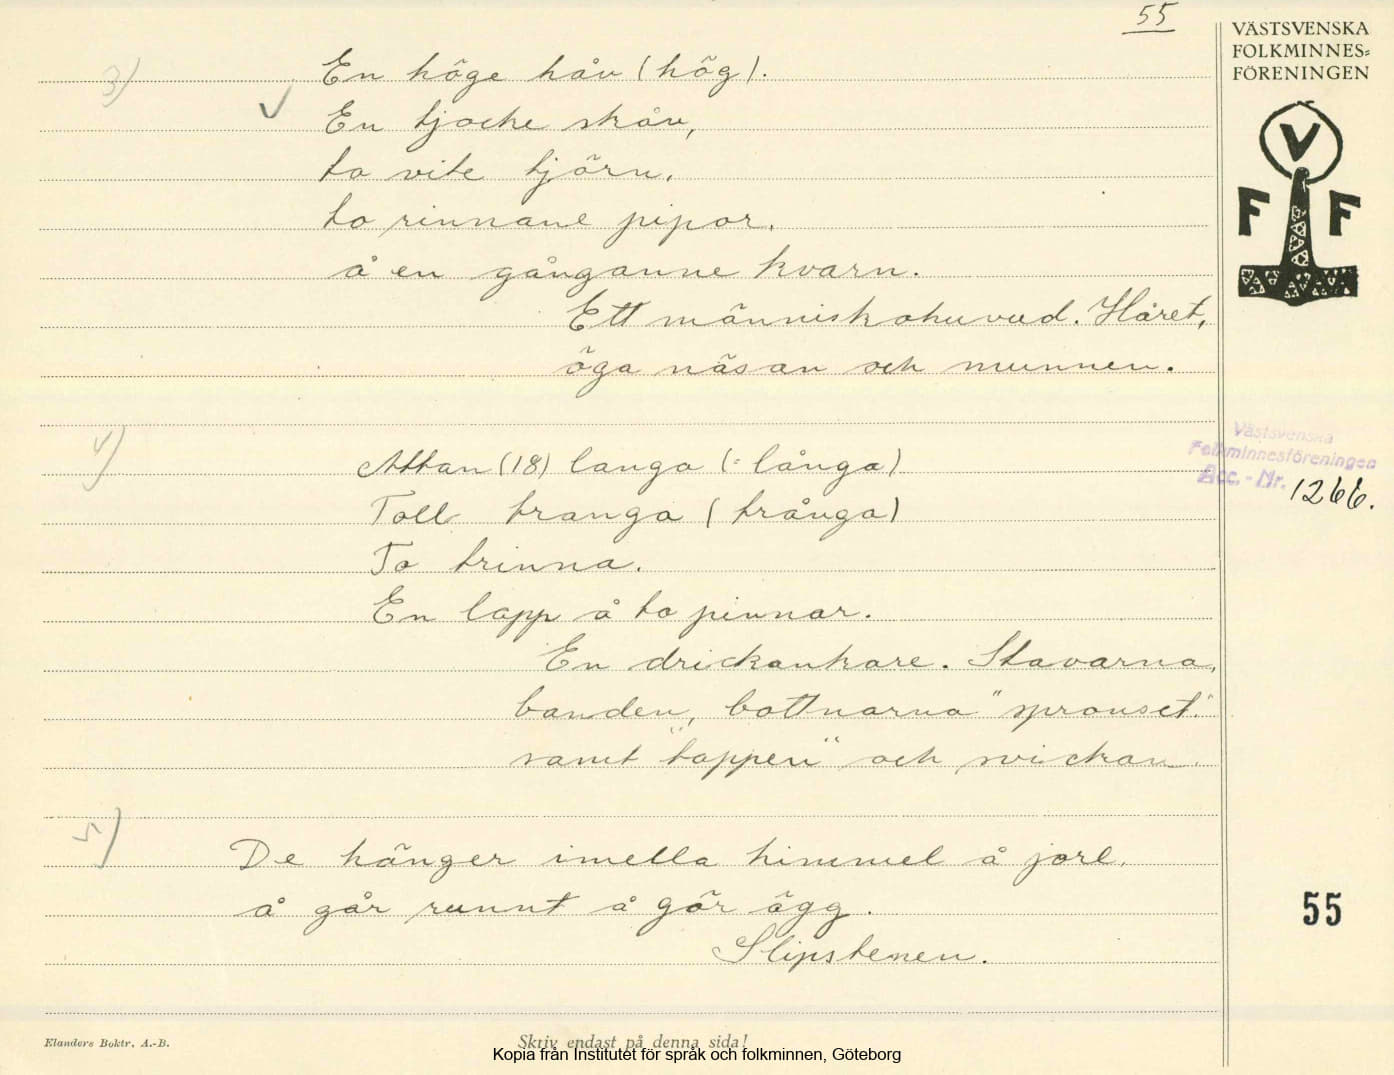 55
VÄSTSVENSKA
FOLKMINNES=
FÖRENINGEN
V
F F
3)
En höge håv (hög).
En tjocke skåv,
to vite tjörn.
to rinnane pipor.
å en gånganne kvarn.
Ett människohuvud. Håret,
öga näsan och munnen.
4)
Attan (18) langa (= långa)
Toll tranga (trånga)
To trinna.
En lapp å to pinnar.
En drickankare. Stavarna,
banden, bottnarna "sprouset"
samt "tappen" och svickan.
Västsvenska
Folkminnesföreningen
Acc.-Nr. 1266.
5)
De hänger imella himmel å jorl.
å går runnt å gör ägg.
Slipstenen.
55
Elanders Boktr. A.-B.
Skriv endast på denna sida!
Kopia från Institutet för språk och folkminnen, Göteborg